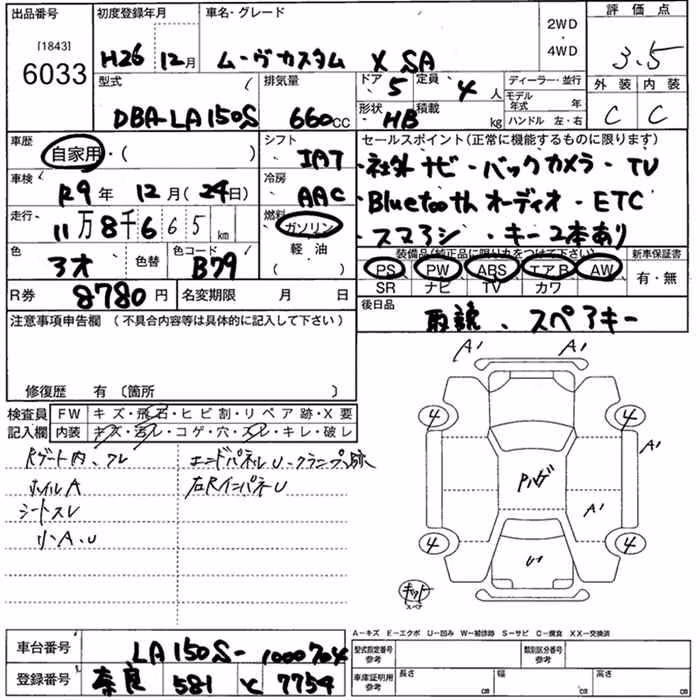 出品番号 初度登録年月 車名・グレード 評価点
[1843]
6033 H26 12月 ムーヴカスタム X SA 2WD・4WD 3.5
型式 排気量 ドア 5 定員 4人 ディーラー・並行 外装 内装
DBA-LA150S 660cc 形状 HB 積載 kg モデル年式 年 ハンドル 左・右 C C
車歴 自家用・( ) シフト IAT セールスポイント(正常に機能するものに限ります)
・社外ナビ・バックカメラ・TV
車検 R9年 12月(24日) 冷房 AAC ・Bluetoothオーディオ・ETC
走行 11万8千665km 燃料 ガソリン 軽油 ・キー2本あり
色 アオ 色替 色コード B79 装備品(純正品に限り丸をつけて下さい) 新車保証書
PS PW ABS エアB AW 有・無
SR ナビ TV カワ
R券 8780円 名変期限 月 日 後日品
取説、スペアキー
注意事項申告欄 (不具合内容等は具体的に記入して下さい)
修復歴 有 〔箇所 〕
検査員 FW キズ・飛石・ヒビ割・リペア跡・X要
記入欄 内装 キズ・汚レ・コゲ・穴・スレ・キレ・破レ
Rゲート内、フレ エンドパネルU・クランプ跡
ホイルA 右RインパネU
シートスレ
小A、U
A' A'
4 4
A'
Pハゲ
A'
4 4
U
キット
スペア
A-キズ E-エクボ U-凹み W-補修跡 S-サビ C-腐食 XX-交換済
車台番号 LA150S-1000704
型式指定番号 参考 類別区分番号 参考
登録番号 奈良 581 く 7754
車庫証明用 参考 長さ cm 幅 cm 高さ cm